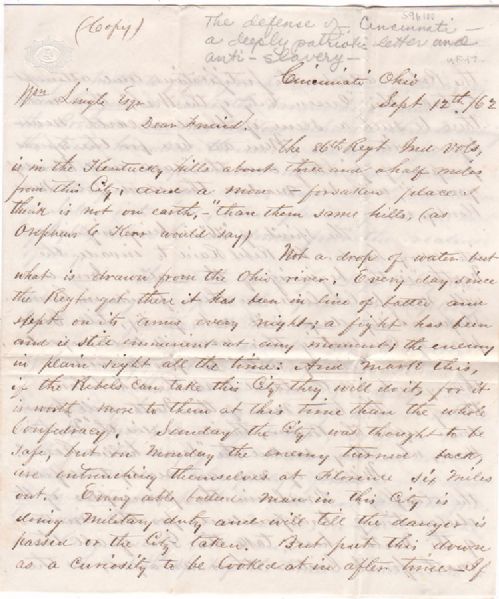 (Copy)
The defense of Cincinnati –
a deeply patriotic letter and
anti-slavery –
Cincinnati Ohio
Sept 12th /62
Wm Lingle Esqr
Dear Friend.
The 86th Regt Ind Vols,
is in the Kentucky hills about three and a half miles
from this City, and a more – forsaken place
their is not on earth, – "than them same hills, (as
Orpheus C Kerr would say)
Not a drop of water but
what is drawn from the Ohio river. Every day since
the Regt got there it has been in line of battle and
slept on its arms every night; a fight has been
and is still imminent at any moment; the enemy
in plain sight all the time: And mark this,
if the Rebels can take this City they will do it, for it
is worth more to them at this time than the whole
Confedracy. Sunday the City was thought to be
safe, but on Monday the enemy turned back,
are entrenching themselves at Florence six miles
out. Every able bodied man in this City is
doing Military duty and will till the danger is
passed or the City taken. But put this down
as a curiosity to be looked at in after time – If